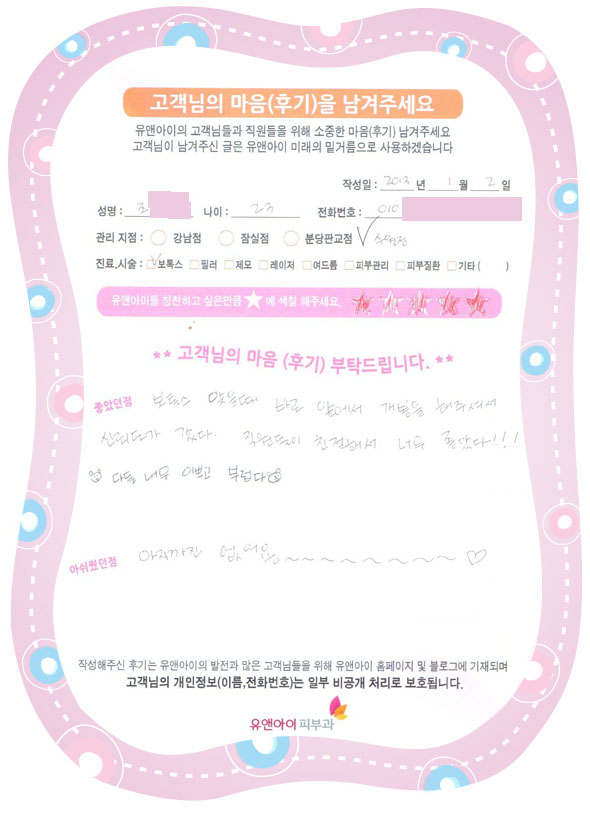 고객님의 마음(후기)을 남겨주세요
유앤아이의 고객님들과 직원들을 위해 소중한 마음(후기) 남겨주세요
고객님이 남겨주신 글은 유앤아이 미래의 밑거름으로 사용하겠습니다
작성일 : 2013 년 1 월 2 일
성명 : 조 나이 : 23 전화번호 : 010
관리 지점 : 강남점 잠실점 분당판교점
진료,시술 : 보톡스 필러 제모 레이저 여드름 피부관리 피부질환 기타 ( )
유앤아이를 칭찬하고 싶은만큼 ★ 에 색칠 해주세요.
** 고객님의 마음 (후기) 부탁드립니다. **
좋았던점 보톡스 맞을때 바로 앞에서 개봉을 해주셔서
신뢰도가 갔다. 직원들이 친절해서 너무 좋았다!!!
다들 너무 이쁘고 부럽다
아쉬웠던점 아직까진 없어요~~~~~~~~♡
작성해주신 후기는 유앤아이의 발전과 많은 고객님들을 위해 유앤아이 홈페이지 및 블로그에 기재되며
고객님의 개인정보(이름,전화번호)는 일부 비공개 처리로 보호됩니다.
유앤아이 피부과